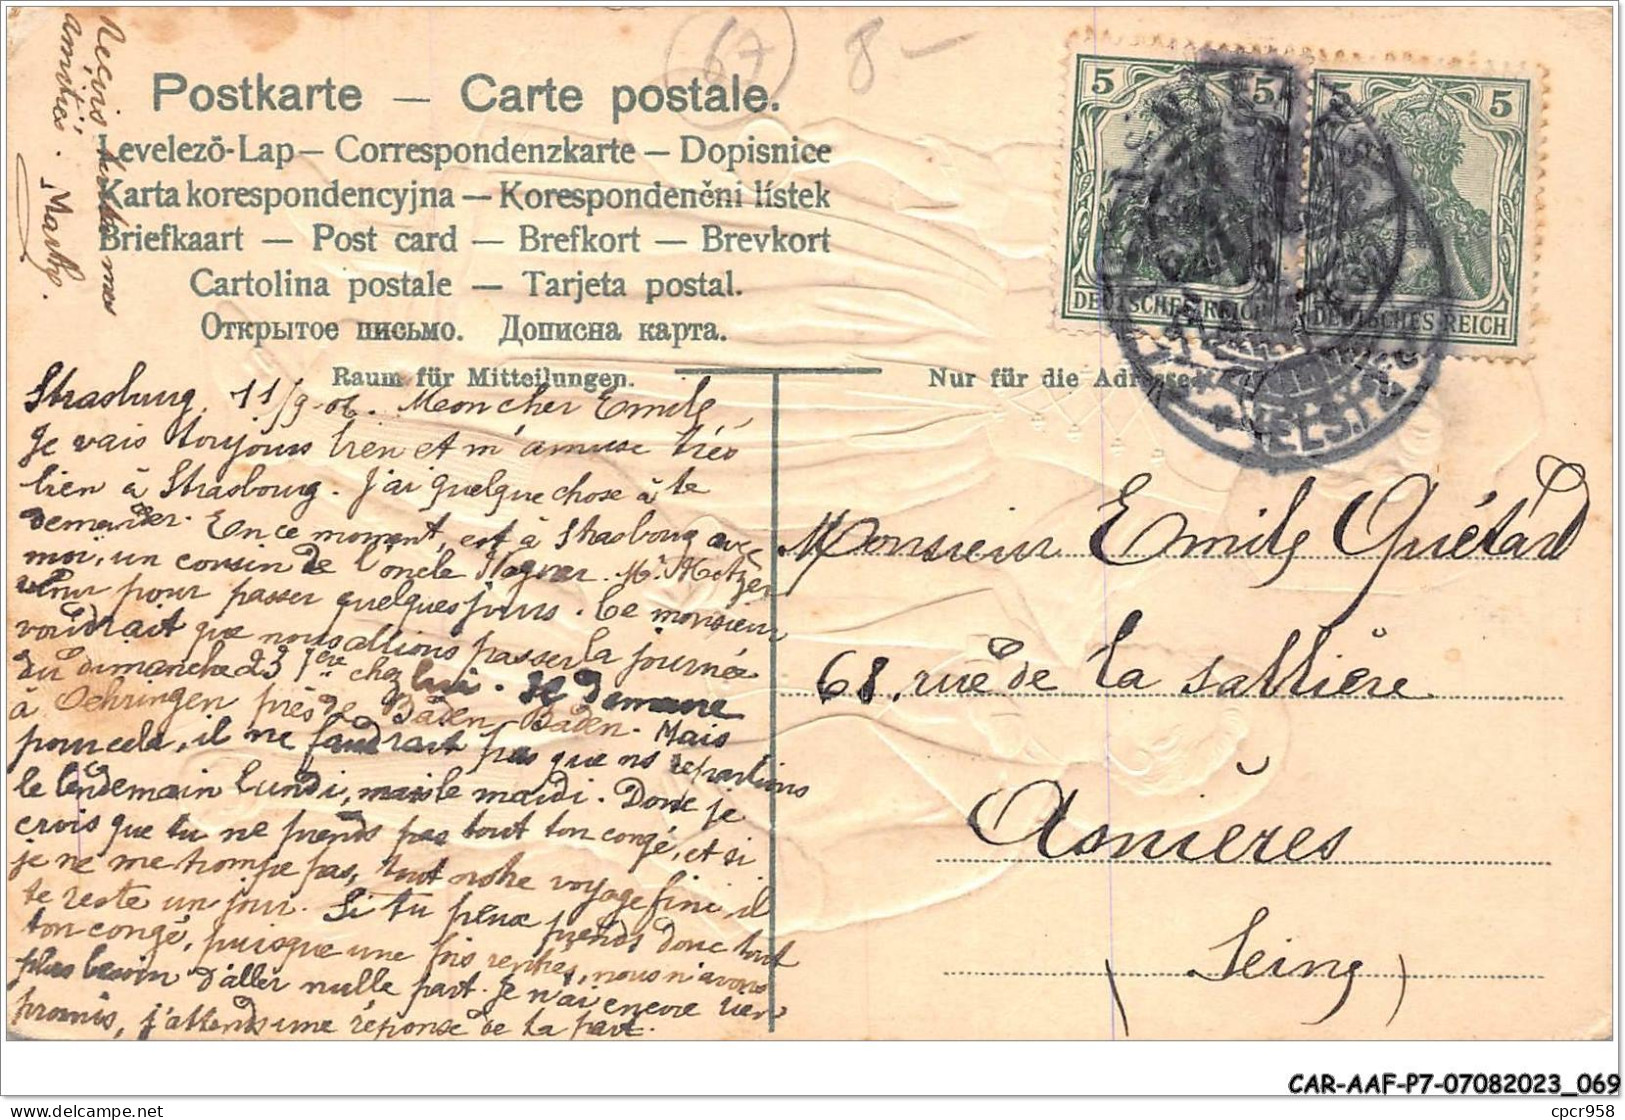 67
8 -
Postkarte — Carte postale.
Levelező-Lap — Correspondenzkarte — Dopisnice
Karta korespondencyjna — Korespondenční lístek
Briefkaart — Post card — Brefkort — Brevkort
Cartolina postale — Tarjeta postal.
Открытое письмо. Дописна карта.
Raum für Mitteilungen.
Nur für die Adresse
5 5
DEUTSCHES REICH
5 5
DEUTSCHES REICH
Reçois mes
amitiés.
Strasburg, 11/9-06. Mon cher Emile,
Je vais toujours bien et m'amuse très
bien à Strasbourg. J'ai quelque chose à te
demander. En ce moment, est à Strasbourg avec
moi, un cousin de l'oncle Wagner. Mr Metzger
venu pour passer quelques jours. Ce monsieur
voudrait que nous allions passer la journée
du dimanche 23 7bre chez lui. Je demeure
à Oehringen près de Baden Baden. Mais
pour cela, il ne faudrait pas que ns repartions
le lendemain lundi, mais le mardi. Donc je
crois que tu ne prends pas tout ton congé, et si
je ne me trompe pas, tout notre voyage fini, il
te reste un jour. Si tu peux prends donc tout
ton congé, puisque une fois rentrés, nous n'avons
plus besoin d'aller nulle part. Je n'ai encore rien
promis, j'attends une réponse de ta part.
Monsieur Emile Guétard
68, rue de la sablière
Asnières
(Seine)
CAR-AAF-P7-07082023_069
cpcr958